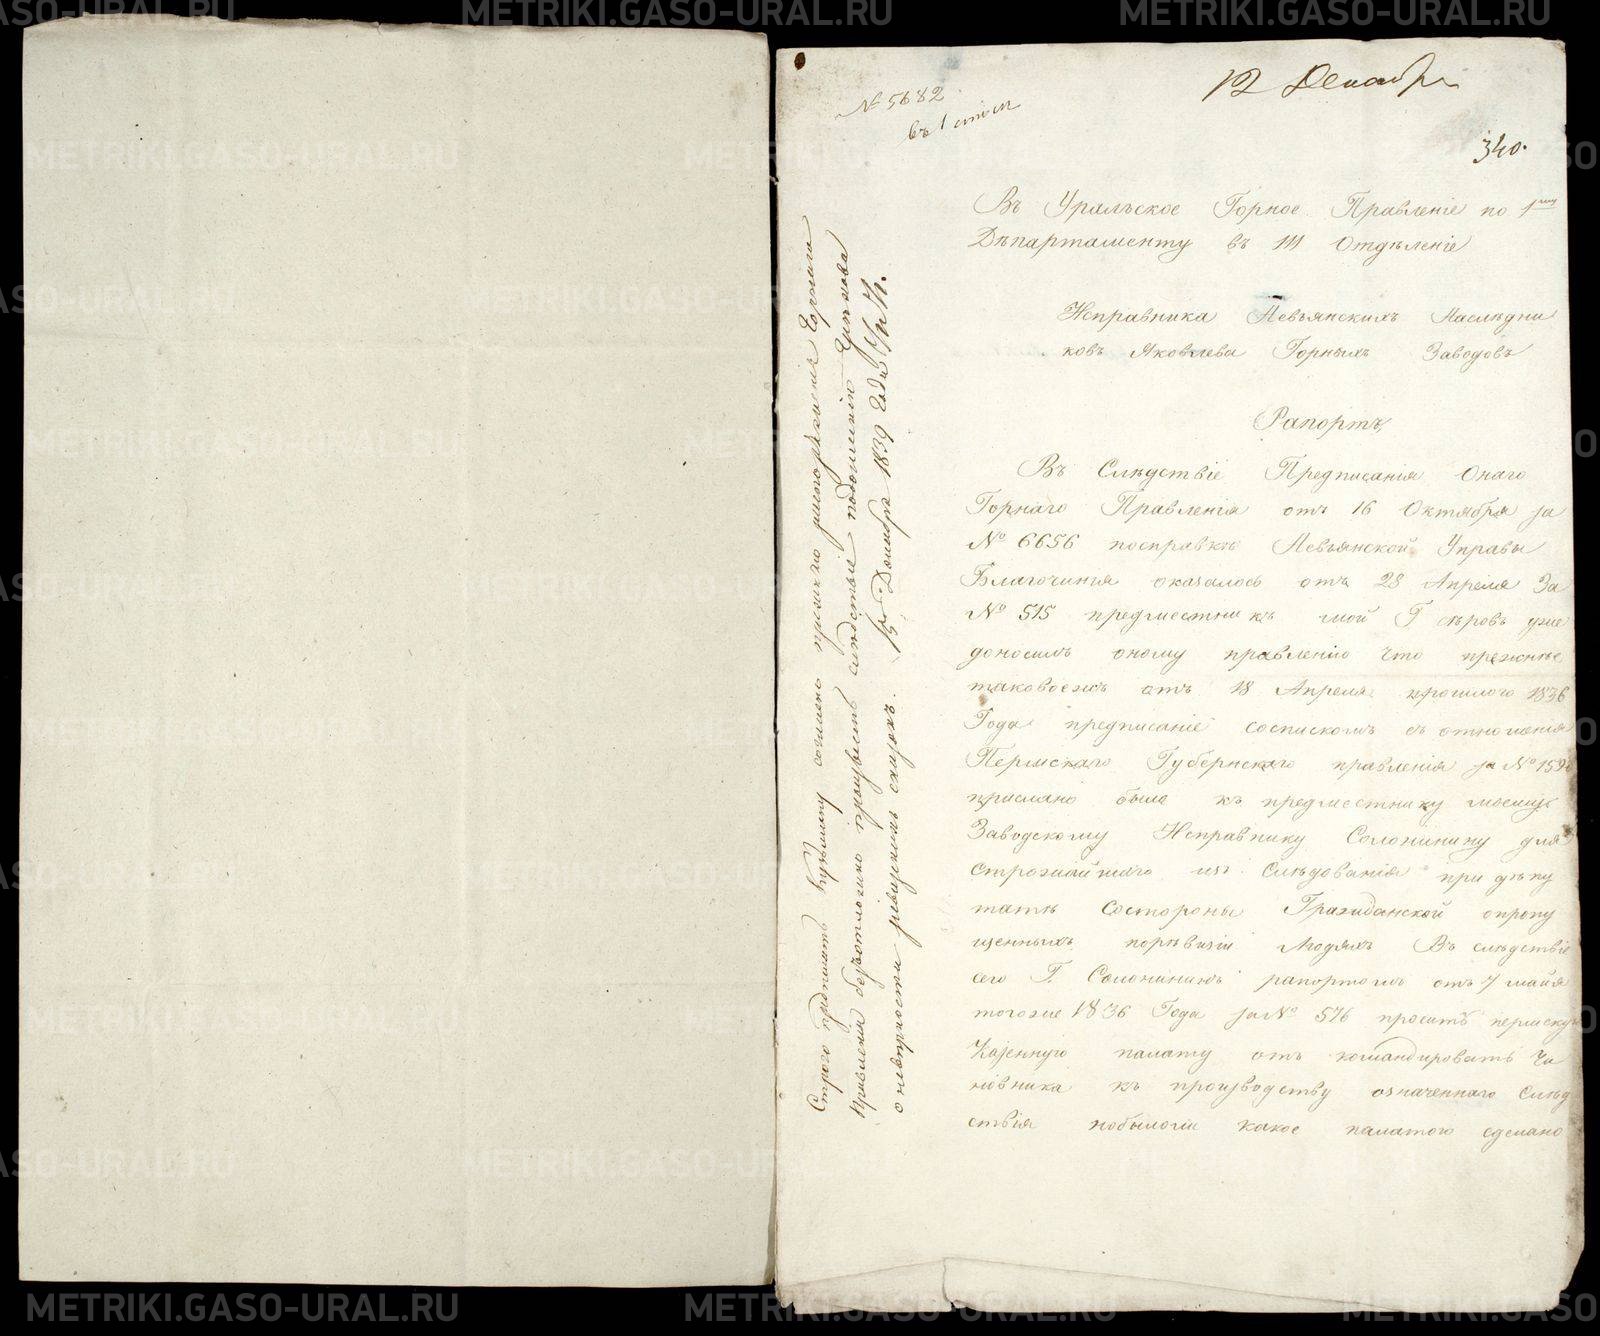 № 5682
въ 1 столъ
12 Декабр
340.
Въ Уральское Горное Правленіе по 1му
Дѣпартаменту въ III Отдѣленіе
Исправника Невьянскихъ Наслѣдни
ковъ Яковлева Горныхъ Заводовъ
Рапортъ,
Въ Слѣдствіе Предписанія Онаго
Горнаго Правленія отъ 16 Октября за
№ 6656 посправкѣ Невьянской Управы
Благочинія оказалось отъ 28 Апреля За
№ 515 предместникъ мой Г уже
доносилъ оному правленію что прежнѣе
таковоежъ отъ 18 Апреля прошлого 1836
Года предписаніе соспискомъ съ отношенія
Пермскаго Губернскаго правленія за № 159
прислано было къ предместнику моему
Заводскому Исправнику Солонинину для
строжайшаго изъ Слѣдованія при дѣпу
татѣ Состороны Гражданской опропу
щенныхъ поревизіи Людяхъ Въ слѣдствіе
сего Г. Солонининъ рапортомъ отъ 7 майя
тогоже 1836 Года за № 576 проситъ пермскую
Казенную палату отъ командировать Чи
новника къ производству означеннаго Слѣд
ствія нобылоли какое палатою сделано
Строго предписать
Правленія безотложно произвесть слѣдствіе
о невѣрности ревизскихъ сказокъ. 15 Декабря 1839 года